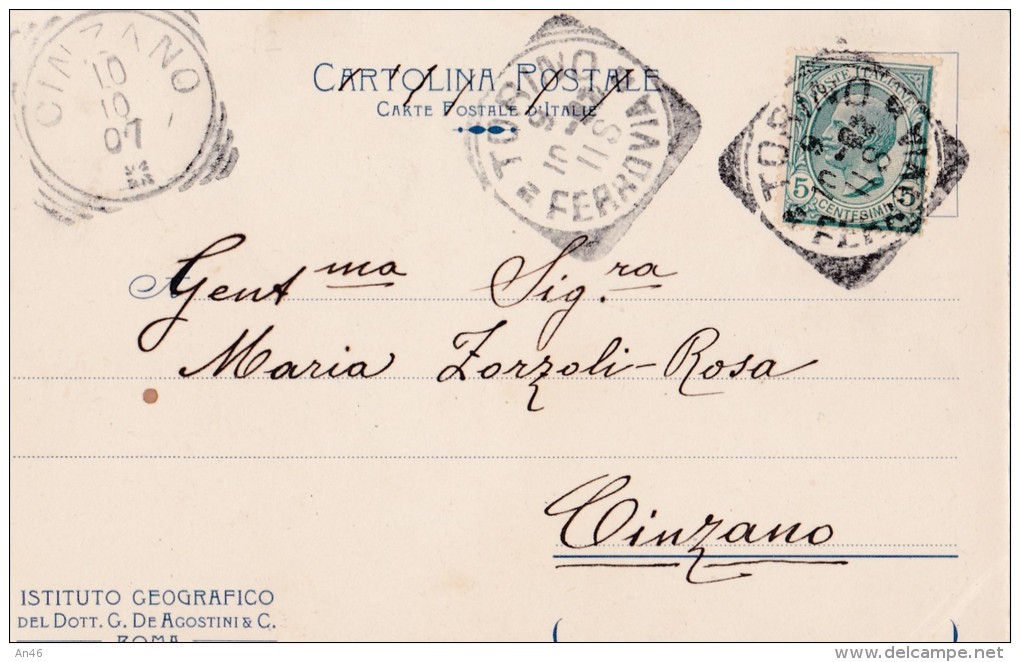 CINZANO
10
10
07
CARTOLINA POSTALE
CARTE POSTALE D'ITALIE
TORINO
FERROVIA
POSTE ITALIANE
5 CENTESIMI 5
A Gent.ma Sig.ra
Maria Zorzoli-Rosa
Cinzano
ISTITUTO GEOGRAFICO
DEL DOTT. G. DE AGOSTINI & C.
ROMA
An46
delcampe.net